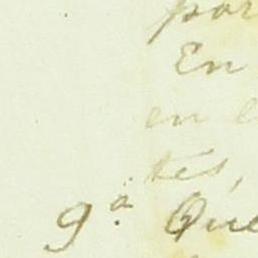 par
En
en
tes,
9ª. Que